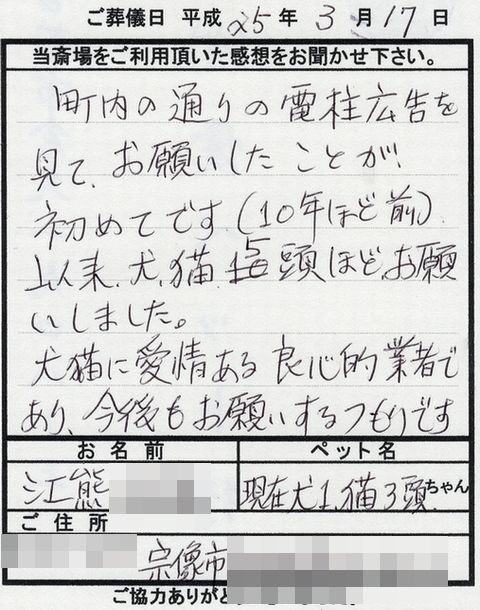 ご葬儀日 平成 25 年 3 月 17 日
当斎場をご利用頂いた感想をお聞かせ下さい。
町内の通りの電柱広告を
見て、お願いしたことが
初めてです(10年ほど前)
以来、犬、猫 15頭ほど、お願
いしました。
犬猫に愛情ある良心的業者で
あり、今後もお願いするつもりです
お名前 ペット名
江熊 現在犬1、猫3頭ちゃん
ご住所
宗像市
ご協力ありが